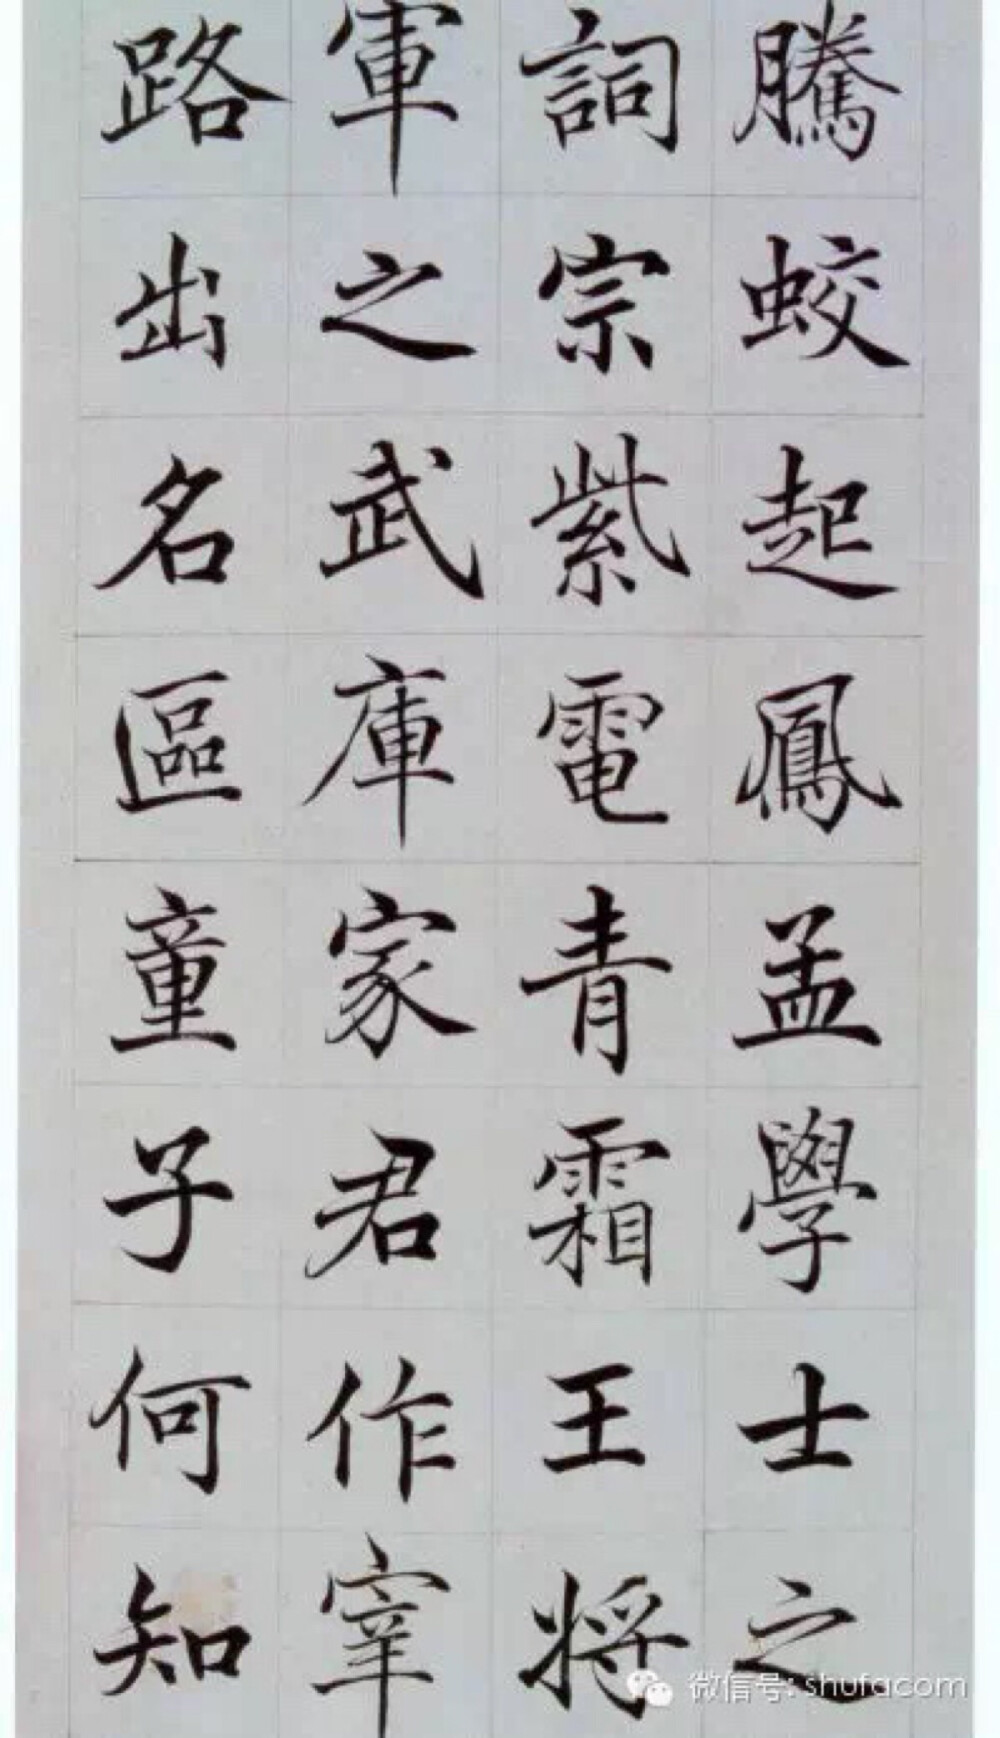 騰蛟起鳳孟學士之
詞宗紫電青霜王將
軍之武庫家君作宰
路出名區童子何知
微信号: shufacom